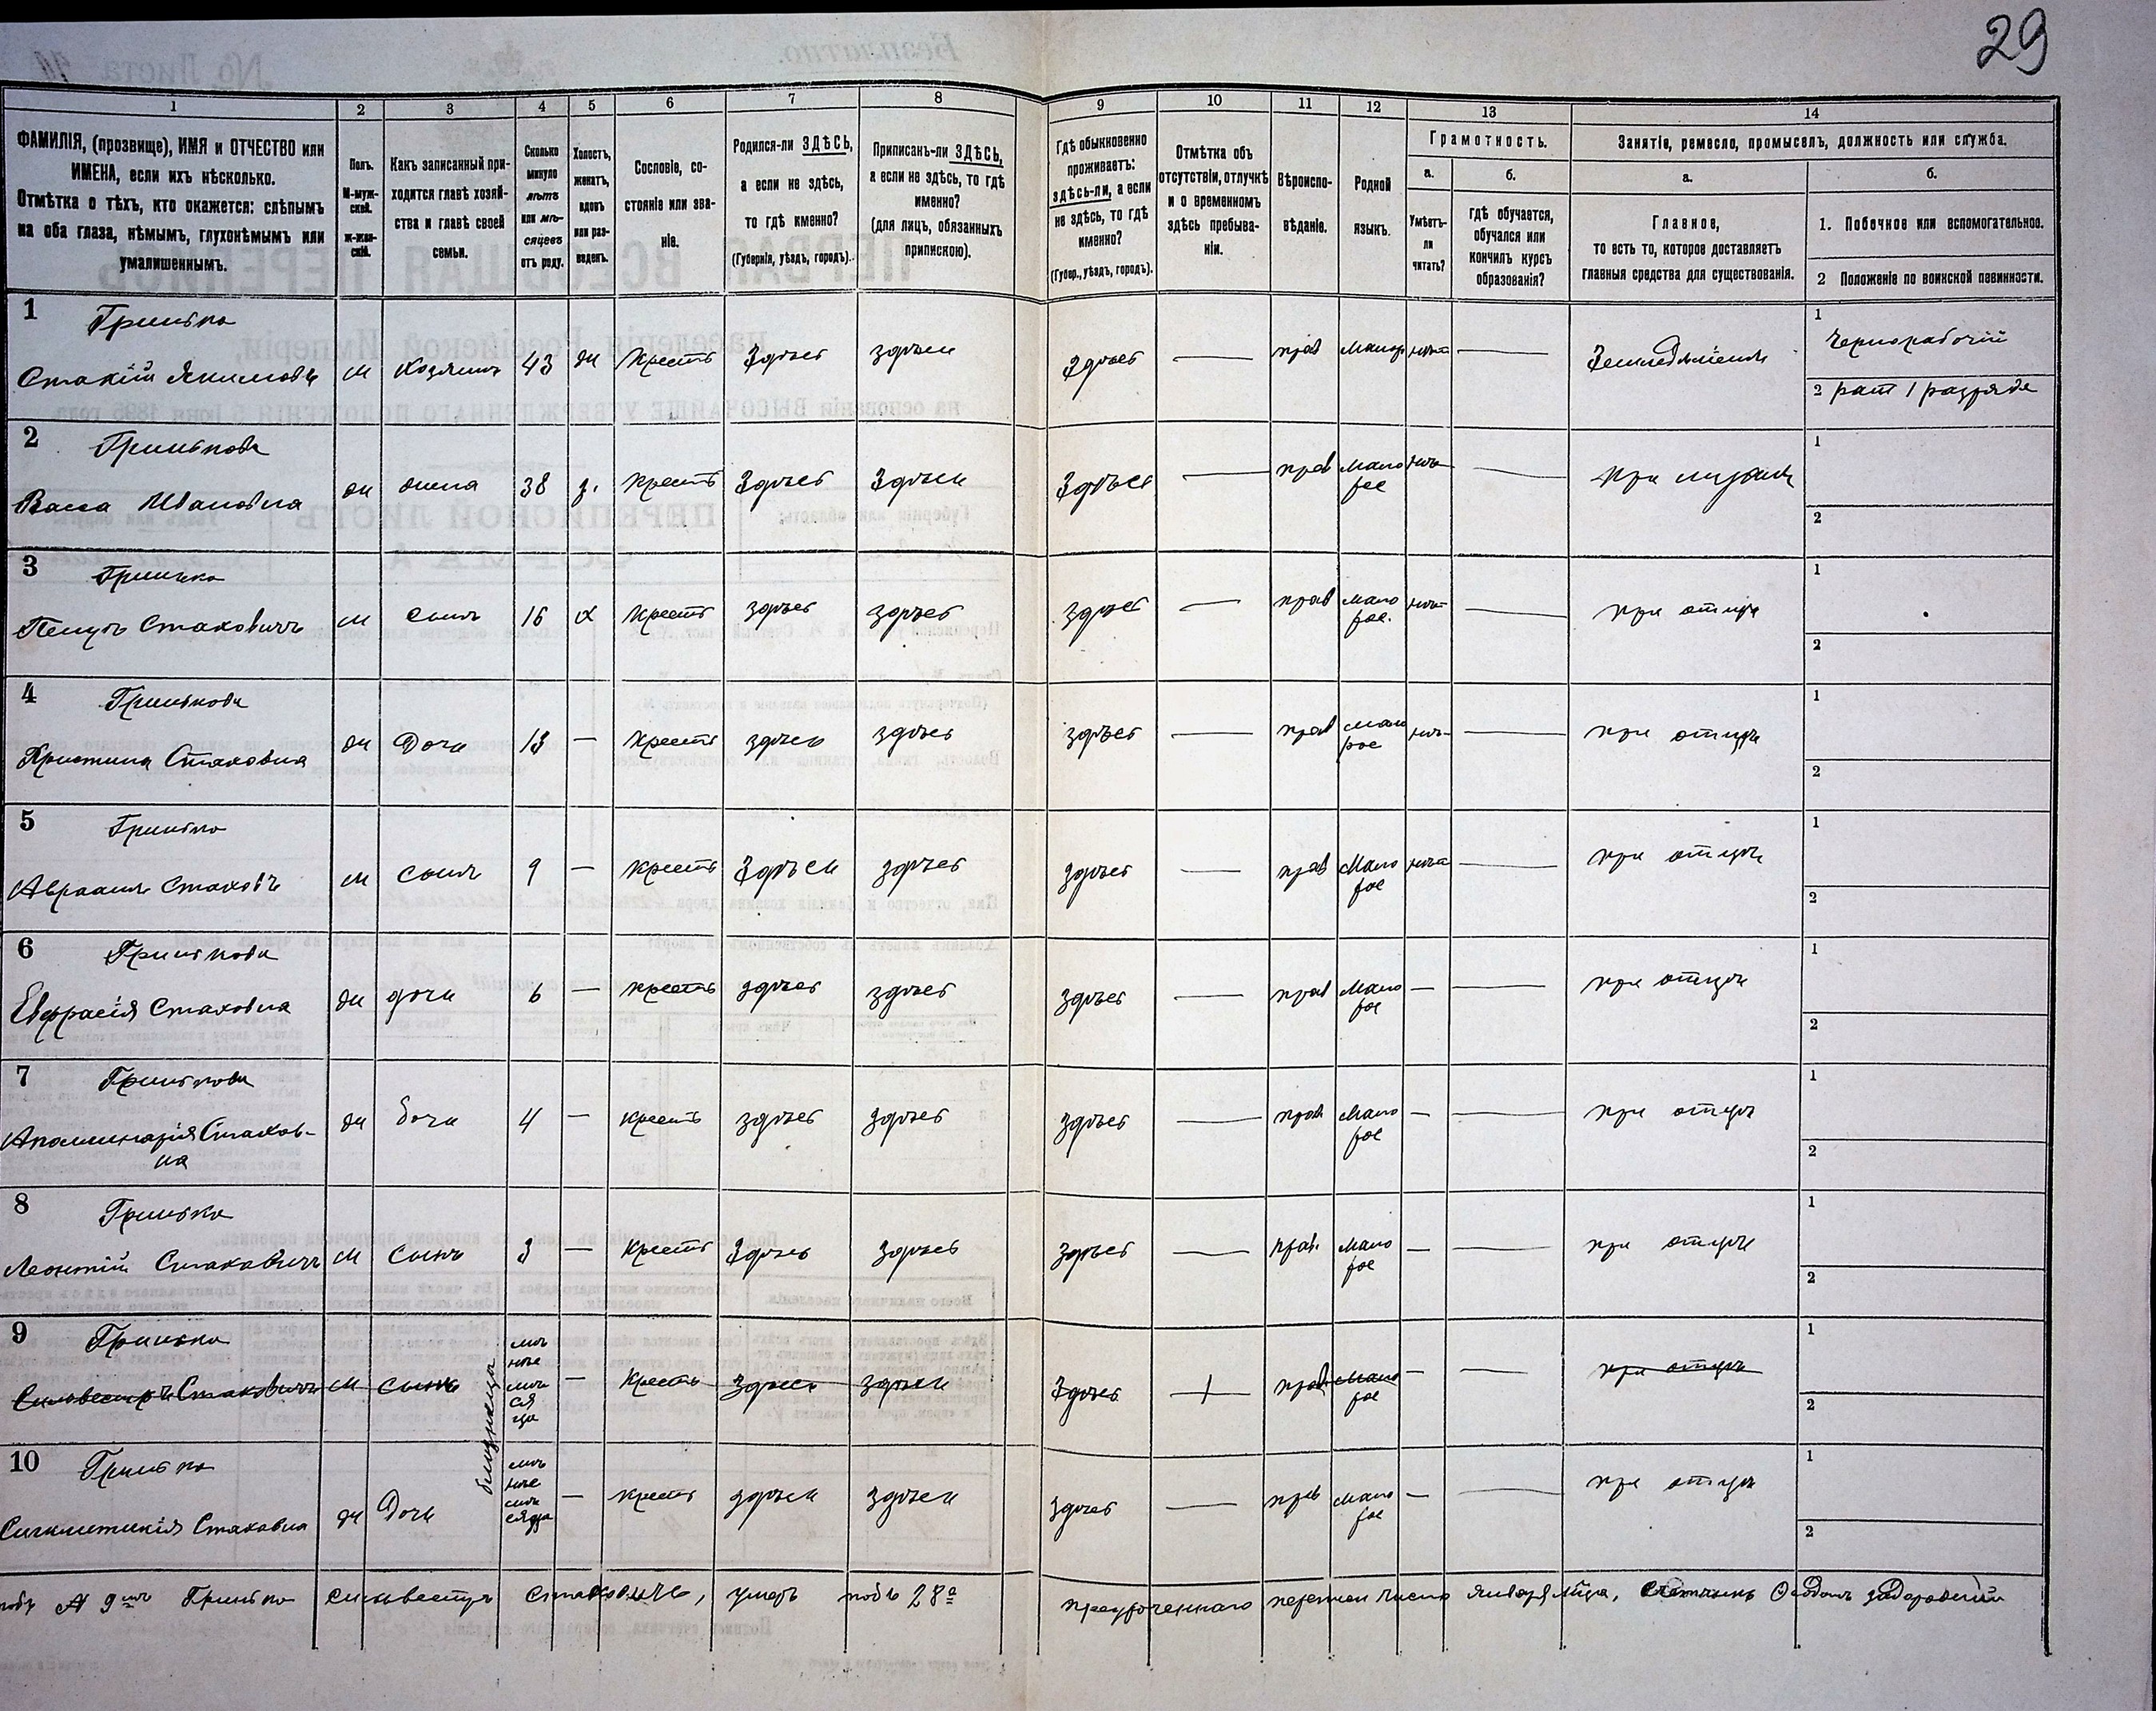 29
1 2 3 4 5 6 7 8 9 10 11 12 13 14
ФАМИЛІЯ, (прозвище), ИМЯ и ОТЧЕСТВО или
ИМЕНА, если ихъ нѣсколько.
Отмѣтка о тѣхъ, кто окажется: слѣпымъ
на оба глаза, нѣмымъ, глухонѣмымъ или
умалишеннымъ.
Полъ.
М-муж-
ской.
Ж-жен-
скій.
Какъ записанный при-
ходится главѣ хозяй-
ства и главѣ своей
семьи.
Сколько
минуло
лѣтъ
или мѣ-
сяцевъ
отъ роду.
Холостъ,
женатъ,
вдовъ
или раз-
веденъ.
Сословіе, со-
стояніе или зва-
ніе.
Родился-ли ЗДѢСЬ,
а если не здѣсь,
то гдѣ именно?
(Губернія, уѣздъ, городъ).
Приписанъ-ли ЗДѢСЬ,
а если не здѣсь, то гдѣ
именно?
(для лицъ, обязанныхъ
припискою).
Гдѣ обыкновенно
проживаетъ:
здѣсь-ли, а если
не здѣсь, то гдѣ
именно?
(Губер., уѣздъ, городъ).
Отмѣтка объ
отсутствіи, отлучкѣ
и о временномъ
здѣсь пребыва-
ніи.
Вѣроиспо-
вѣданіе.
Родной
языкъ.
Грамотность.
а.
Умѣетъ-
ли
читать?
б.
гдѣ обучается,
обучался или
кончилъ курсъ
образованія?
Занятіе, ремесло, промыселъ, должность или служба.
а.
Главное,
то есть то, которое доставляетъ
главныя средства для существованія.
б.
1. Побочное или вспомогательное.
2 Положеніе по воинской повинности.
1 Гринько
Стахій Якимовъ м хозяинъ 43 ж Крест Здѣсь здѣсь Здѣсь — прав Малор нѣт — Земледѣліемъ
1 Чернорабочій
2 рат 1 разряда
2 Гринькова
Васса Ивановна ж жена 38 з. Крест Здѣсь Здѣсь Здѣсь — прав Мало рос нѣт — При мужѣ
1
2
3 Гринько
Стаховичъ м сынъ 16 х Крест здѣсь здѣсь здѣсь — прав Мало рос. нѣт — при отцѣ
1
2
4 Гринькова
Христина Стаховна ж Дочь 13 — Крест здѣсь здѣсь здѣсь — прав Мало рос нѣт — при отцѣ
1
2
5 Гринько
Авраамъ Стаховъ м сынъ 9 — Крест Здѣсь здѣсь здѣсь — прав Мало рос нѣт — при отцѣ
1
2
6 Гринькова
Евфрасія Стаховна ж дочь 6 — крест здѣсь здѣсь здѣсь — прав Мало рос — — при отцѣ
1
2
7 Гринькова
Стахов-
на ж дочь 4 — крест здѣсь здѣсь здѣсь — прав Мало рос — — при отцѣ
1
2
8 Гринько
Леонтій Стаховичъ м сынъ 3 — Крест Здѣсь Здѣсь здѣсь — прав. Мало рос — — при отцѣ
1
2
9 Гринько
Сильвестръ Стаховичъ м сынъ близнецы мѣ нѣе мѣ ся ца — Крест Здѣсь здѣсь Здѣсь + прав Мало рос — — при отцѣ
1
2
10 Гринько
Синклитикія Стаховна ж Дочь мѣ нѣе мѣ сяца — крест здѣсь здѣсь здѣсь — прав Мало рос — — при отцѣ
1
2
подъ № 9мъ Гринько Сильвестръ Стаховичъ, умеръ подъ 28е пріуроченнаго переписи число Января м-ца, Счетчикъ Федотъ